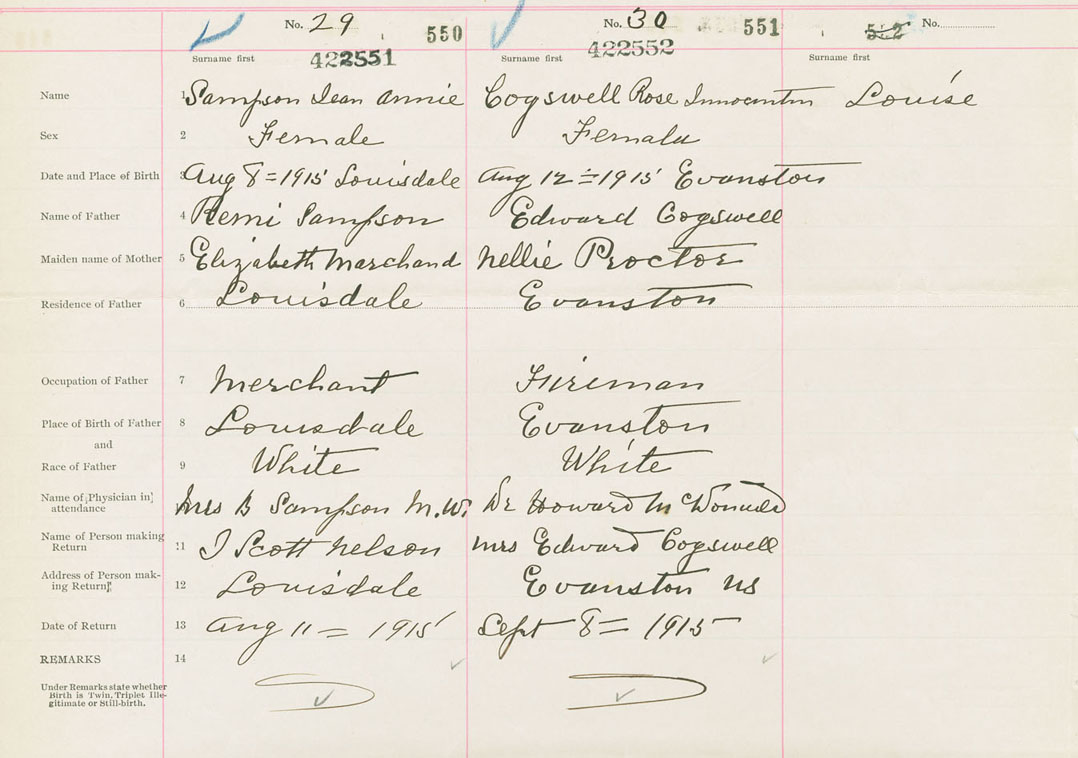 No. 29 550 No. 30 551 No.
422551 422552
Surname first Surname first Surname first
Name 1 Sampson Jean Annie Cogswell Rose Louise
Sex 2 Female Female
Date and Place of Birth 3 Aug 8 = 1915 Louisdale Aug 12 = 1915 Evanston
Name of Father 4 Remi Sampson Edward Cogswell
Maiden name of Mother 5 Elizabeth Marchand Nellie Proctor
Residence of Father 6 Louisdale Evanston
Occupation of Father 7 Merchant Fireman
Place of Birth of Father 8 Louisdale Evanston
and
Race of Father 9 White White
Name of Physician in attendance Mrs B Sampson M.W. Dr Howard
Name of Person making Return 11 J Scott Nelson Mrs Edward Cogswell
Address of Person mak-
ing Return 12 Louisdale Evanston NS
Date of Return 13 Aug 11 = 1915 Sept 8 = 1915
REMARKS 14
Under Remarks state whether
Birth is Twin, Triplet Ille-
gitimate or Still-birth.